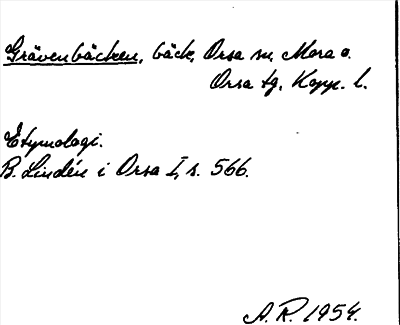 Grävenbäcken, bäck, Orsa sn, Mora o.
Orsa tg, Kopp. l.
Etymologi.
B. Lindén i Orsa I, s. 566.
A. R. 1954.